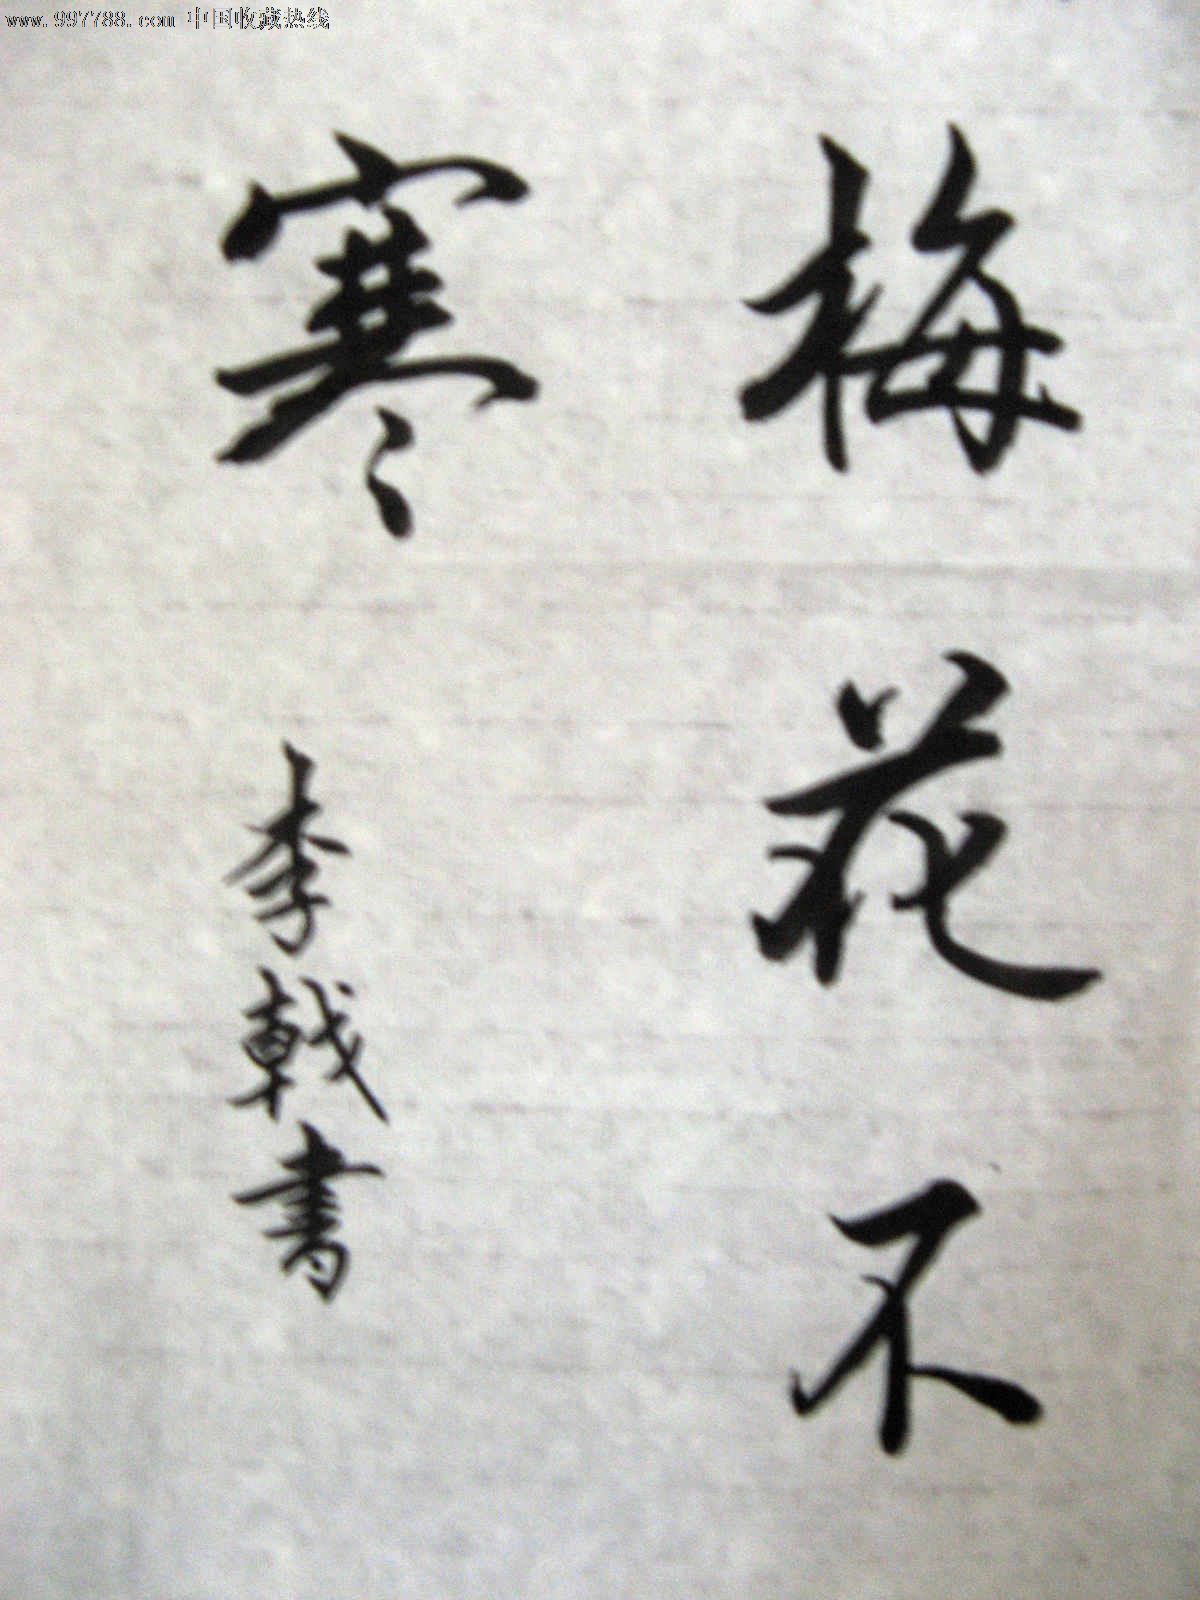 www.997788.com 中国收藏热线
梅花不
寒
李戟書